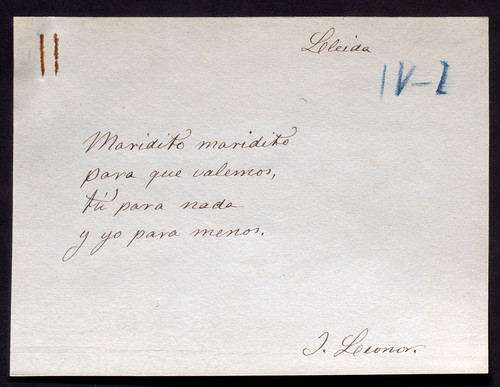 Lleida
IV-I
Maridito maridito
para que valemos,
tú para nada
y yo para menos.
J. Leonor.